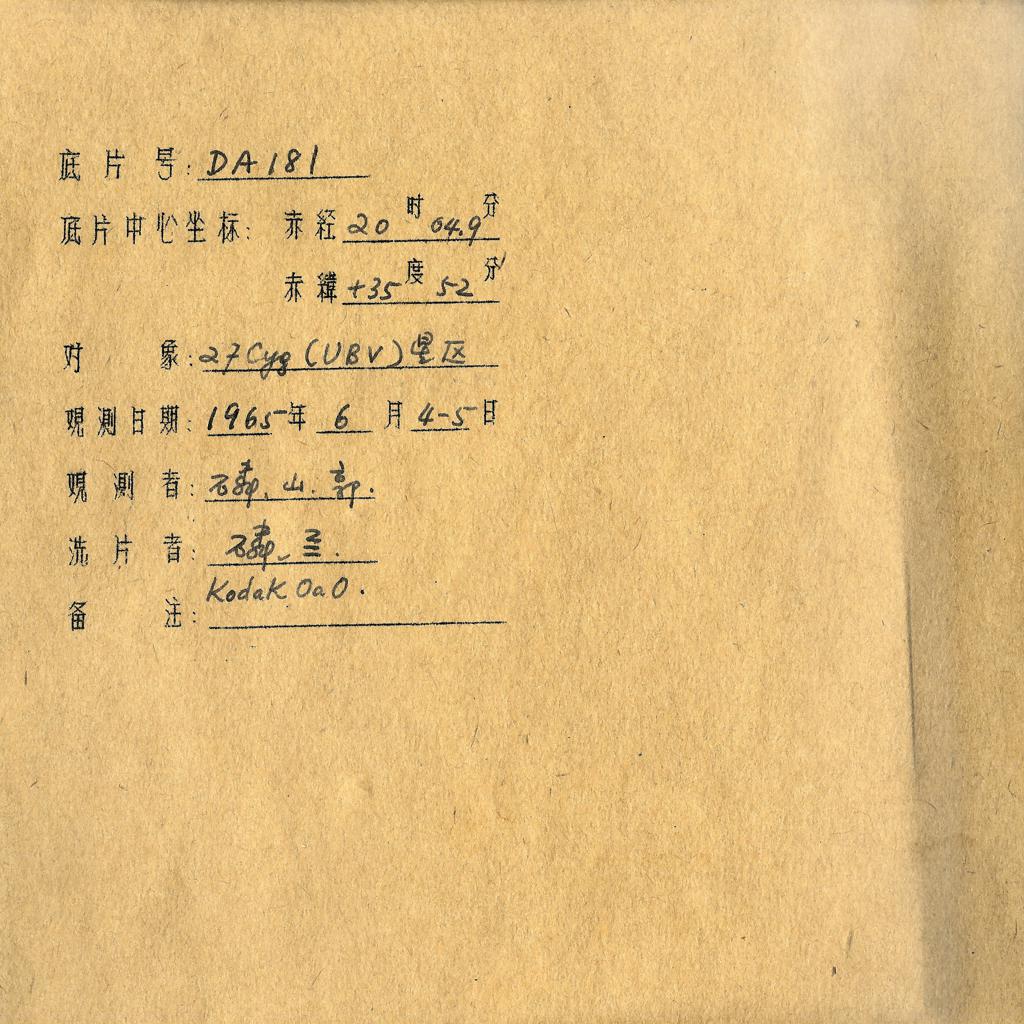 底片号: DA181
底片中心坐标: 赤经 20 时 04.9 分
赤緯 +35 度 52 分
对象: 27 Cyg (UBV) 星区
观测日期: 1965年 6 月 4-5 日
观测者: 山. 郭.
洗片者: 兰.
Kodak OaO.
备注: